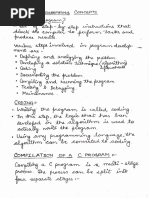 PROGRAMMING CONCEPTS
Program?
Set of step by step instructions that
direct the computer to perform tasks and
produce results
Various steps involved in program develop-
ment are -
• Defining and analysing the problem
• Developing a solution technique/algorithm
• Coding
• Documenting the problem
• Compiling and running the program
• Testing & Debugging
• Maintenance
CODING -
• Writing the program is called coding
• In this step, the logic that has been
developed in the algorithm is used to
actually write the program.
• Using any programming language, the
algorithm can be converted to source
code.
COMPILATION OF A C PROGRAM :-
Compiling a C program is a multi-stage
process. The process can be split into
four separate stages :-